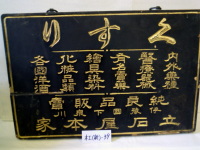 くすり
内外藥種
醫療器械
有名賣藥
繪具染料
化粧品類
各國洋酒
純良品販賣
立石屋本家